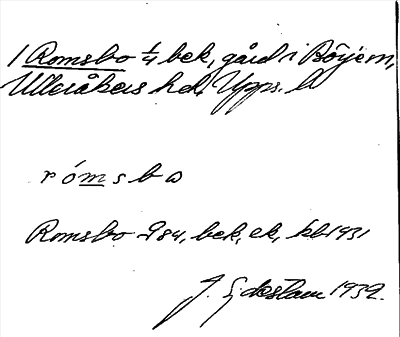 1 Romsbo 1/4 bek, gård i Börje sn,
Ulleråkers hd. Upps. l
rómsbω
Romsbo 284, bek, ek, kb 1931
J. Sjdestam 1932.